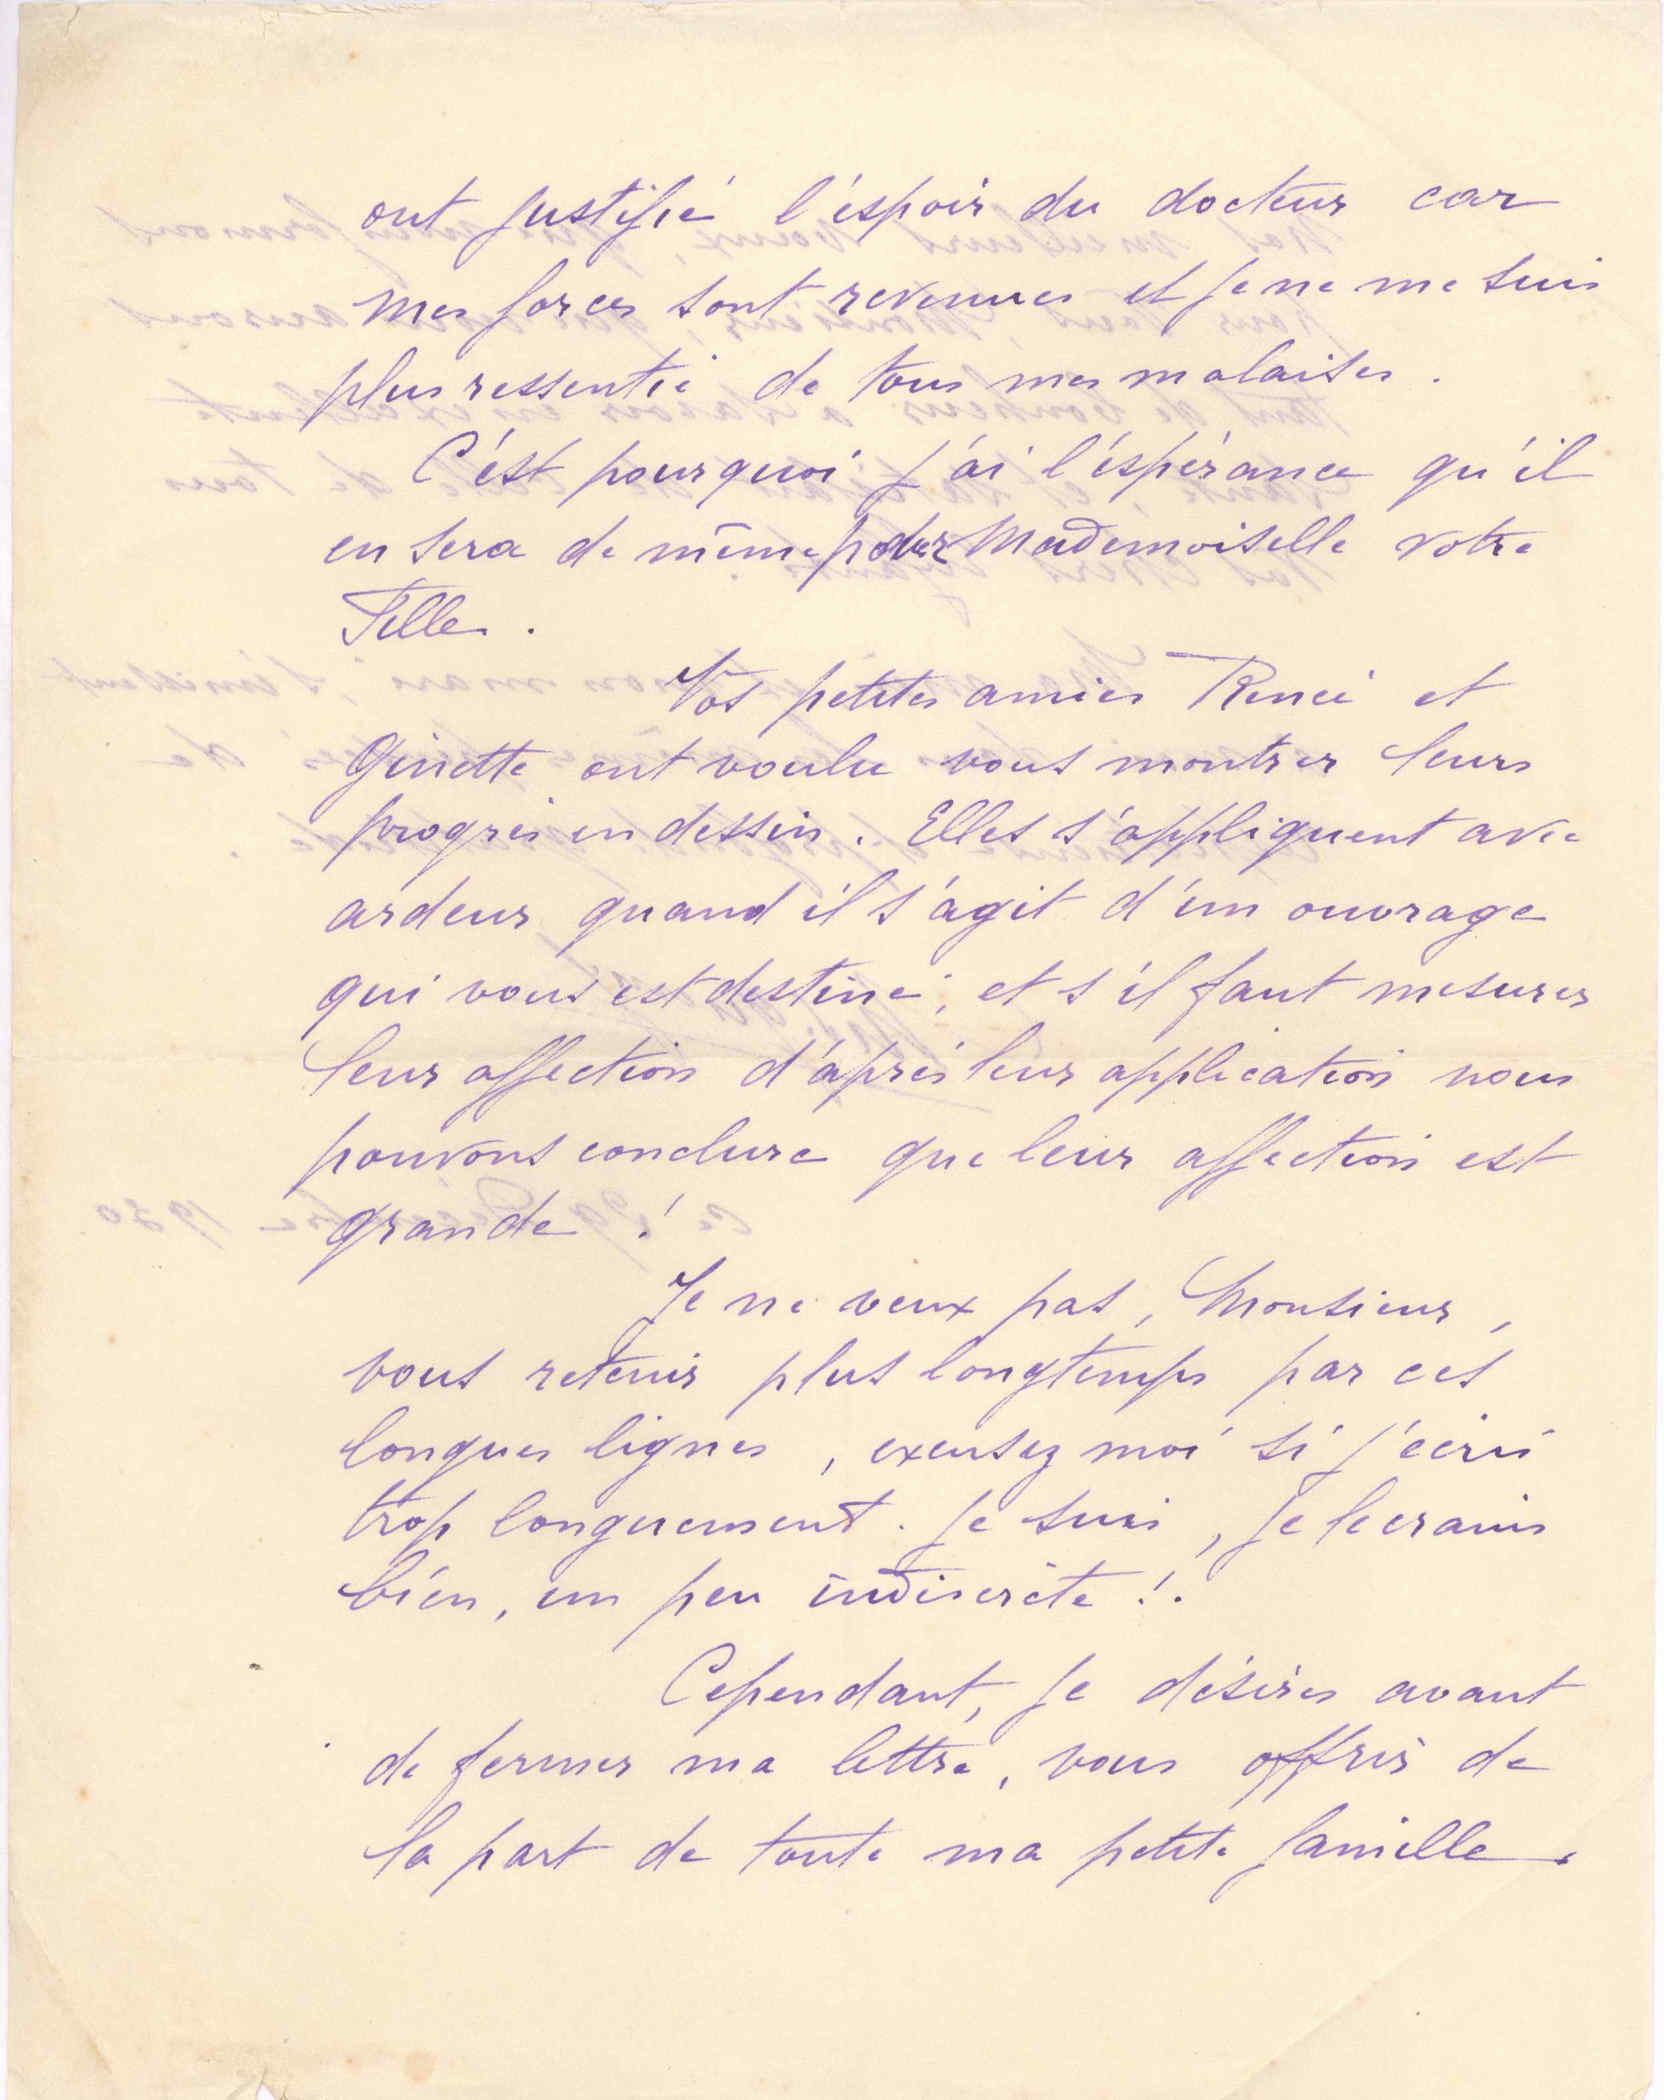 ont justifié l'espoir du docteur car
mes forces sont revenues et je ne me suis
plus ressentie de tous mes malaises.
C'est pourquoi j'ai l'espérance qu'il
en sera de même pour Mademoiselle votre
Fille.
Vos petites amies Renée et
Ginette ont voulu vous montrer leurs
progrès en dessin. Elles s'appliquent avec
ardeur quand il s'agit d'un ouvrage
qui vous est destiné, et s'il faut mesurer
leur affection d'après leur application nous
pouvons conclure que leur affection est
grande !
Je ne veux pas, Monsieur,
vous retenir plus longtemps par ces
longues lignes, excusez moi si j'écris
trop longuement. Je suis, je le crains
bien, un peu indiscrète !.
Cependant, je désire avant
de fermer ma lettre, vous offrir de
la part de toute ma petite famille.